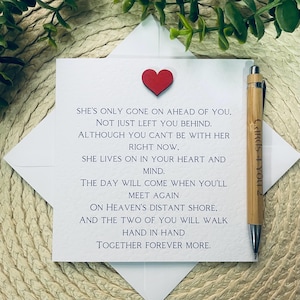 She's only gone on ahead of you,
Not just left you behind.
Although you can't be with her
right now,
she lives on in your heart and
mind.
The day will come when you'll
meet again
On Heaven's distant shore,
And the two of you will walk
hand in hand
Together forever more.